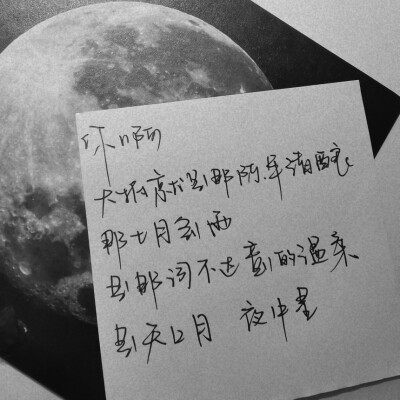 你啊
大抵就是那陈年清酿
那七月雨
是那词不达意的温柔
是天上月 夜中星